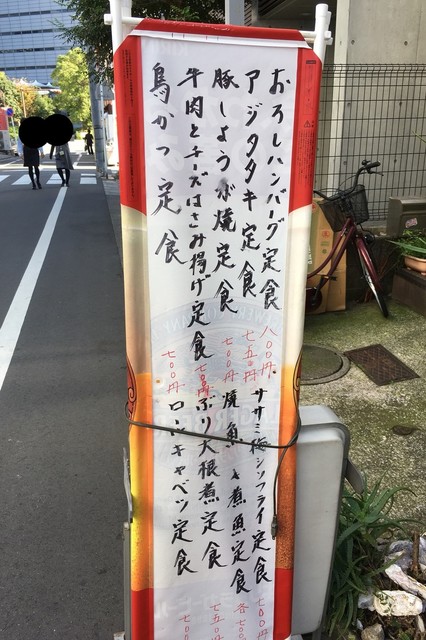 おろしハンバーグ定食 八〇〇円
アジタタキ定食 七五〇円
豚しょうが焼定食 七〇〇円
牛肉とチーズはさみ揚げ定食 七〇〇円
鳥かつ定食 七〇〇円
ササミ梅シソフライ定食 七〇〇円
焼魚・煮魚定食 各七〇〇
ぶり大根煮定食 七五〇
ロールキャベツ定食 七〇〇